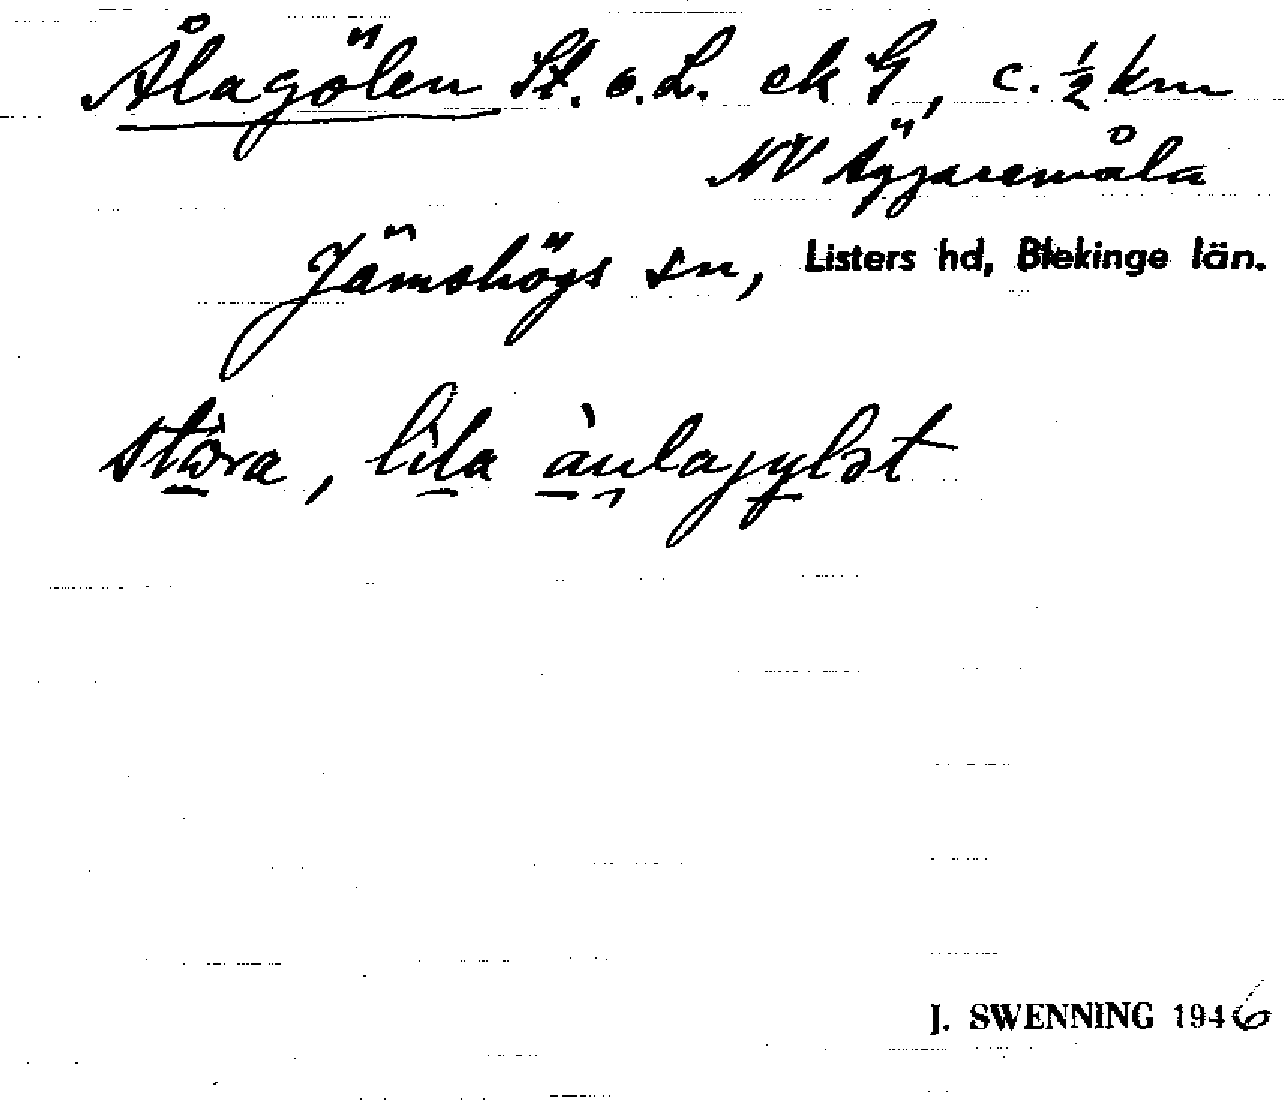 Ålagölen St. o. L. ek G, c. ½ km
NV Äyjaremåla
Jämshögs sn, Listers hd, Blekinge län.
stòra, lìla àulajylət
J. SWENNING 1946